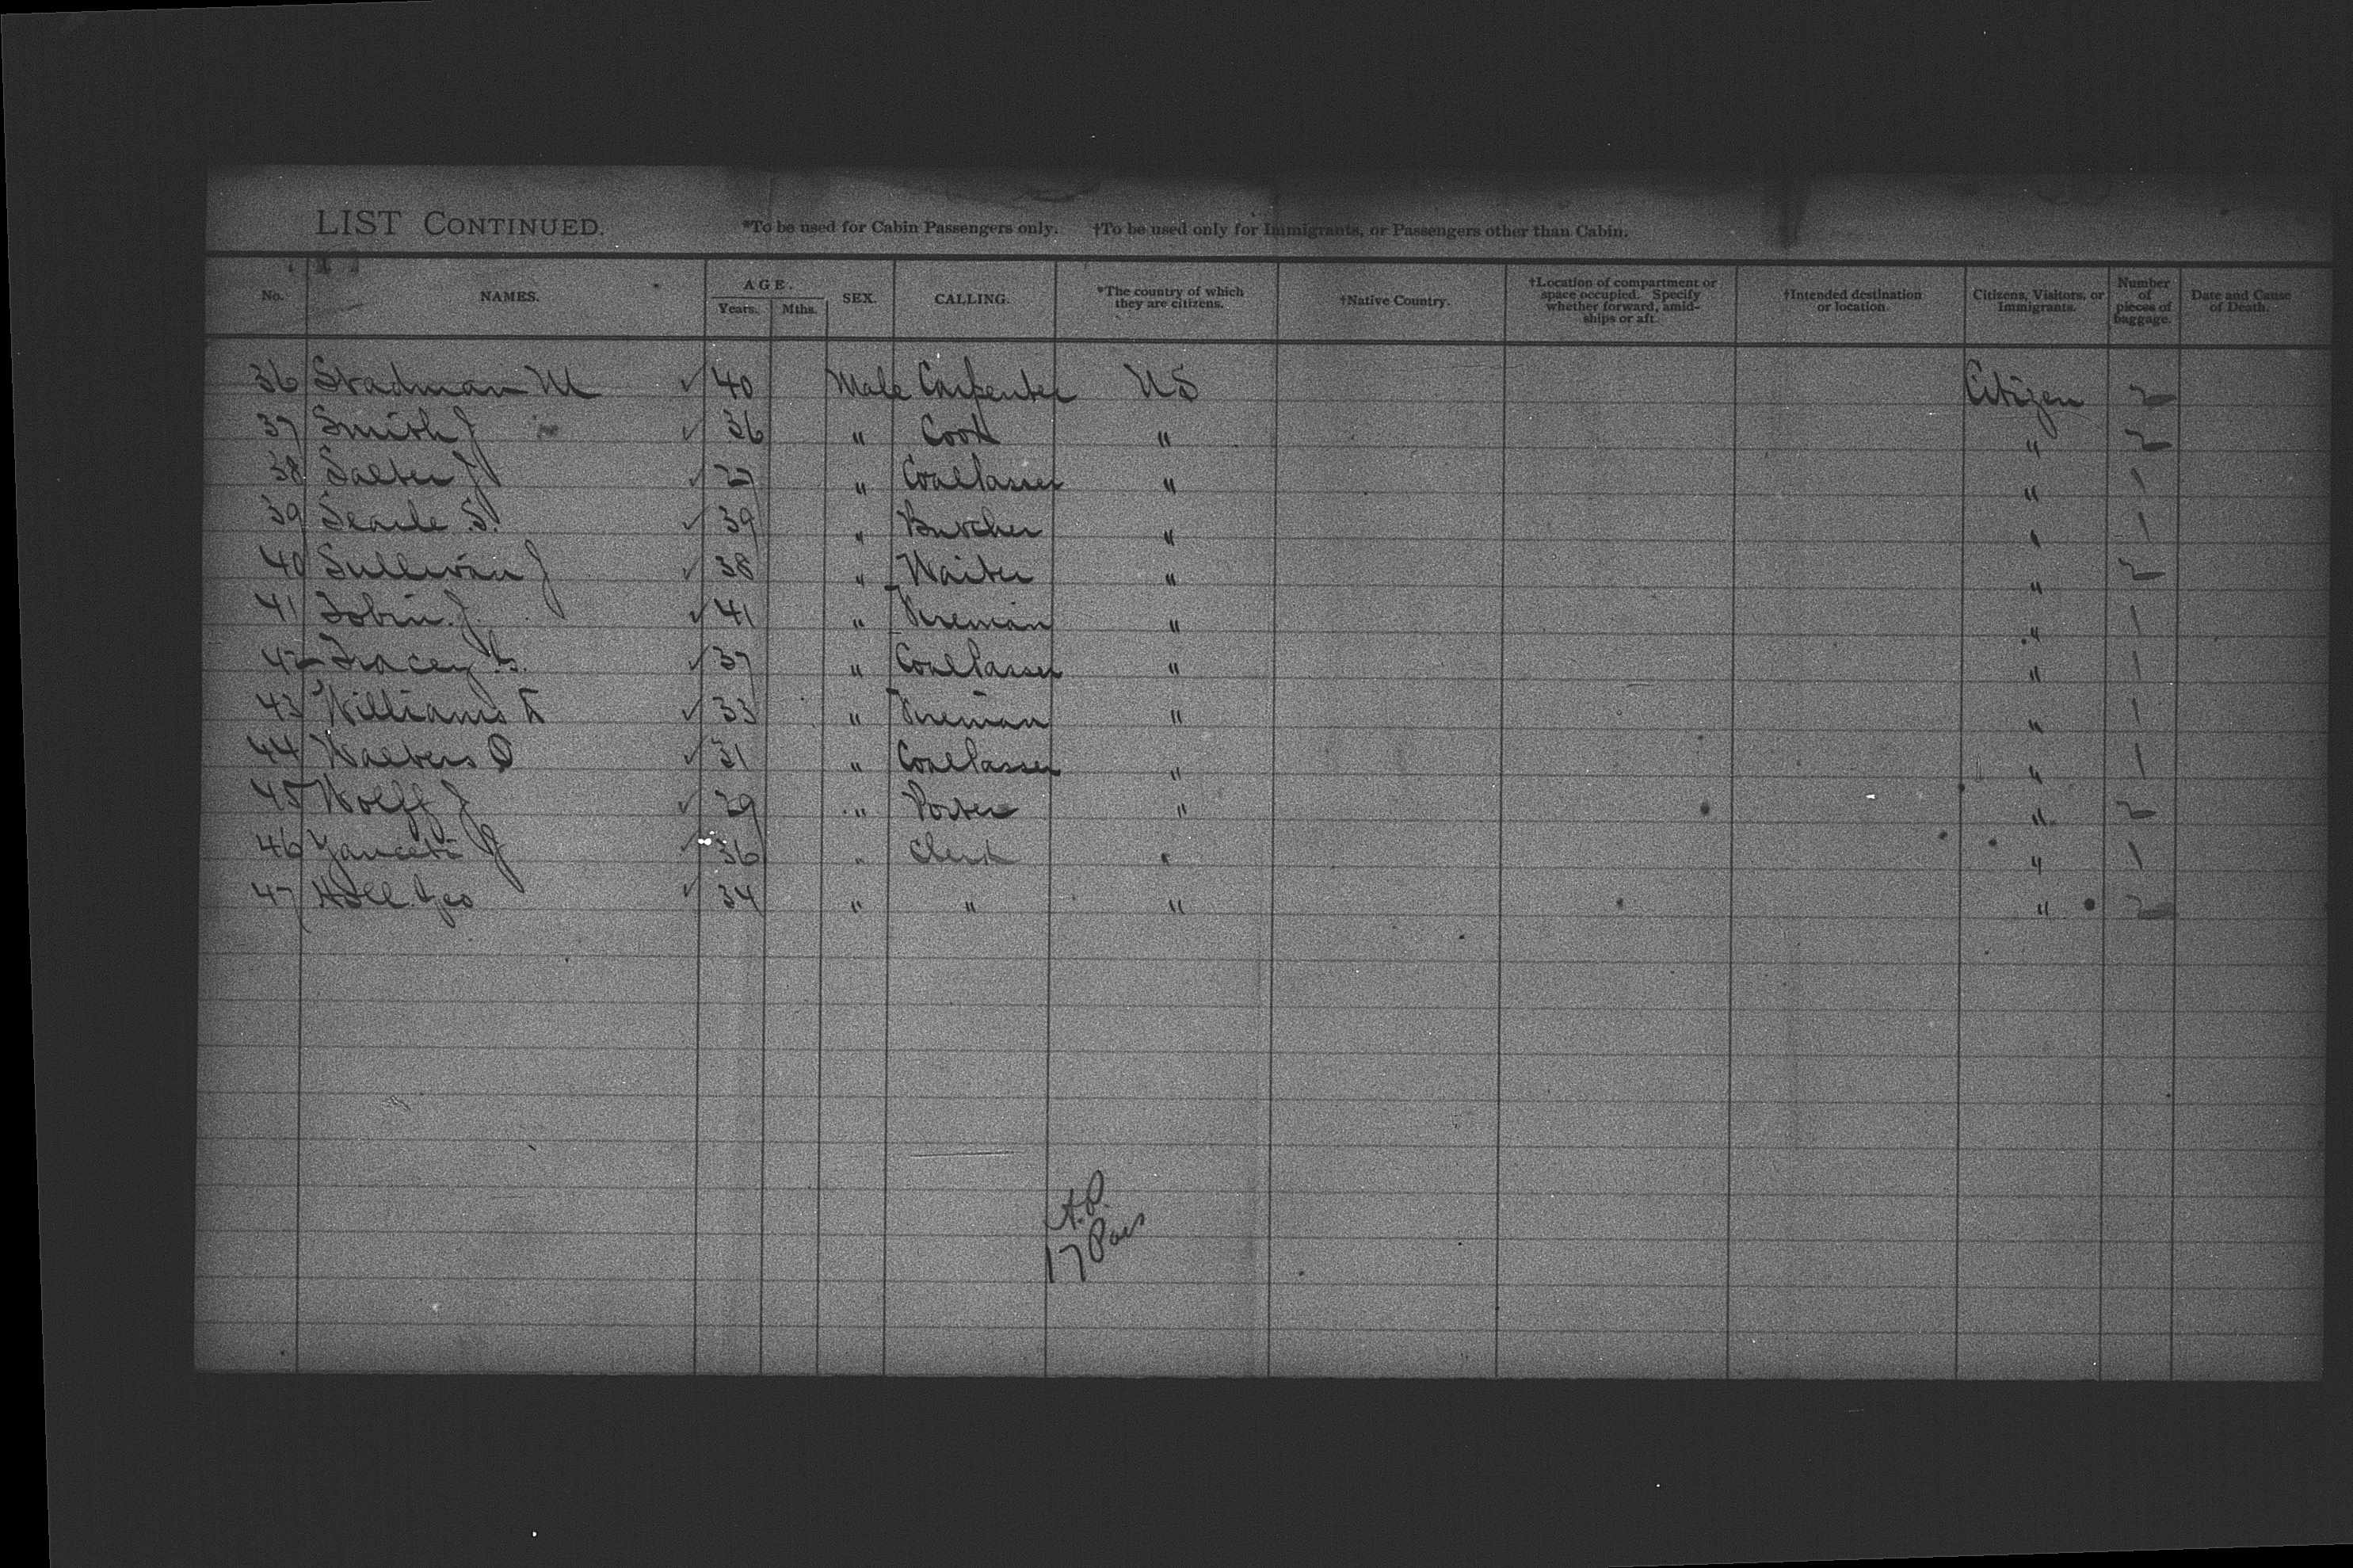 LIST CONTINUED. *To be used for Cabin Passengers only. †To be used only for Immigrants, or Passengers other than Cabin.
No. NAMES. AGE. Years. Mths. SEX. CALLING. *The country of which they are citizens. †Native Country. †Location of compartment or space occupied. Specify whether forward, amidships or aft. †Intended destination or location. Citizens, Visitors, or Immigrants. Number of pieces of baggage. Date and Cause of Death.
36 Stadman M ✓ 40 Male Carpenter US Citizen 2
37 Smith J ✓ 36 " Cook " " 2
38 Salter J ✓ 27 " Coal Passer " " 1
39 Searle S. ✓ 39 " Butcher " " 1
40 Sullivan J ✓ 38 " Waiter " " 2
41 Tobin. J. ✓ 41 " Fireman " " 1
42 Tracey ✓ 37 " Coal Passer " " 1
43 Williams ✓ 33 " Fireman " " 1
44 Walters ✓ 31 " Coal Passer " " 1
45 Wolff J ✓ 29 " Porter " " 2
46 J ✓ 36 " Clerk " " 1
47 Geo ✓ 34 " " " " 2
A.P.
17 Pas